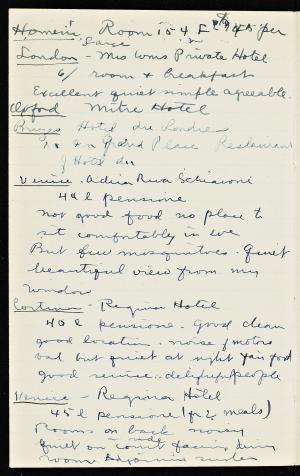 Room 154 $45 per
London - Mrs Wms Private Hotel
6/ room + breakfast
Excellent quiet simple agreeable.
Oxford Mitre Hotel
Bruges Hotel du Londres
Grand Place Restaurant
Hotel du
Venice. Adria Riva Schiavoni
pensione
not good food no place to
sit comfortably in eve
But few mosquitoes. Quiet
beautiful view from my
window
Cortina - Regina Hotel
40 l pensione. Good clean
good location. noise of motors
bad but quiet at night fair food
good service. delightful people
Venice - Regina Hotel
45 l pensione (for 2 meals)
Rooms on back noisy
quiet on court side facing
room